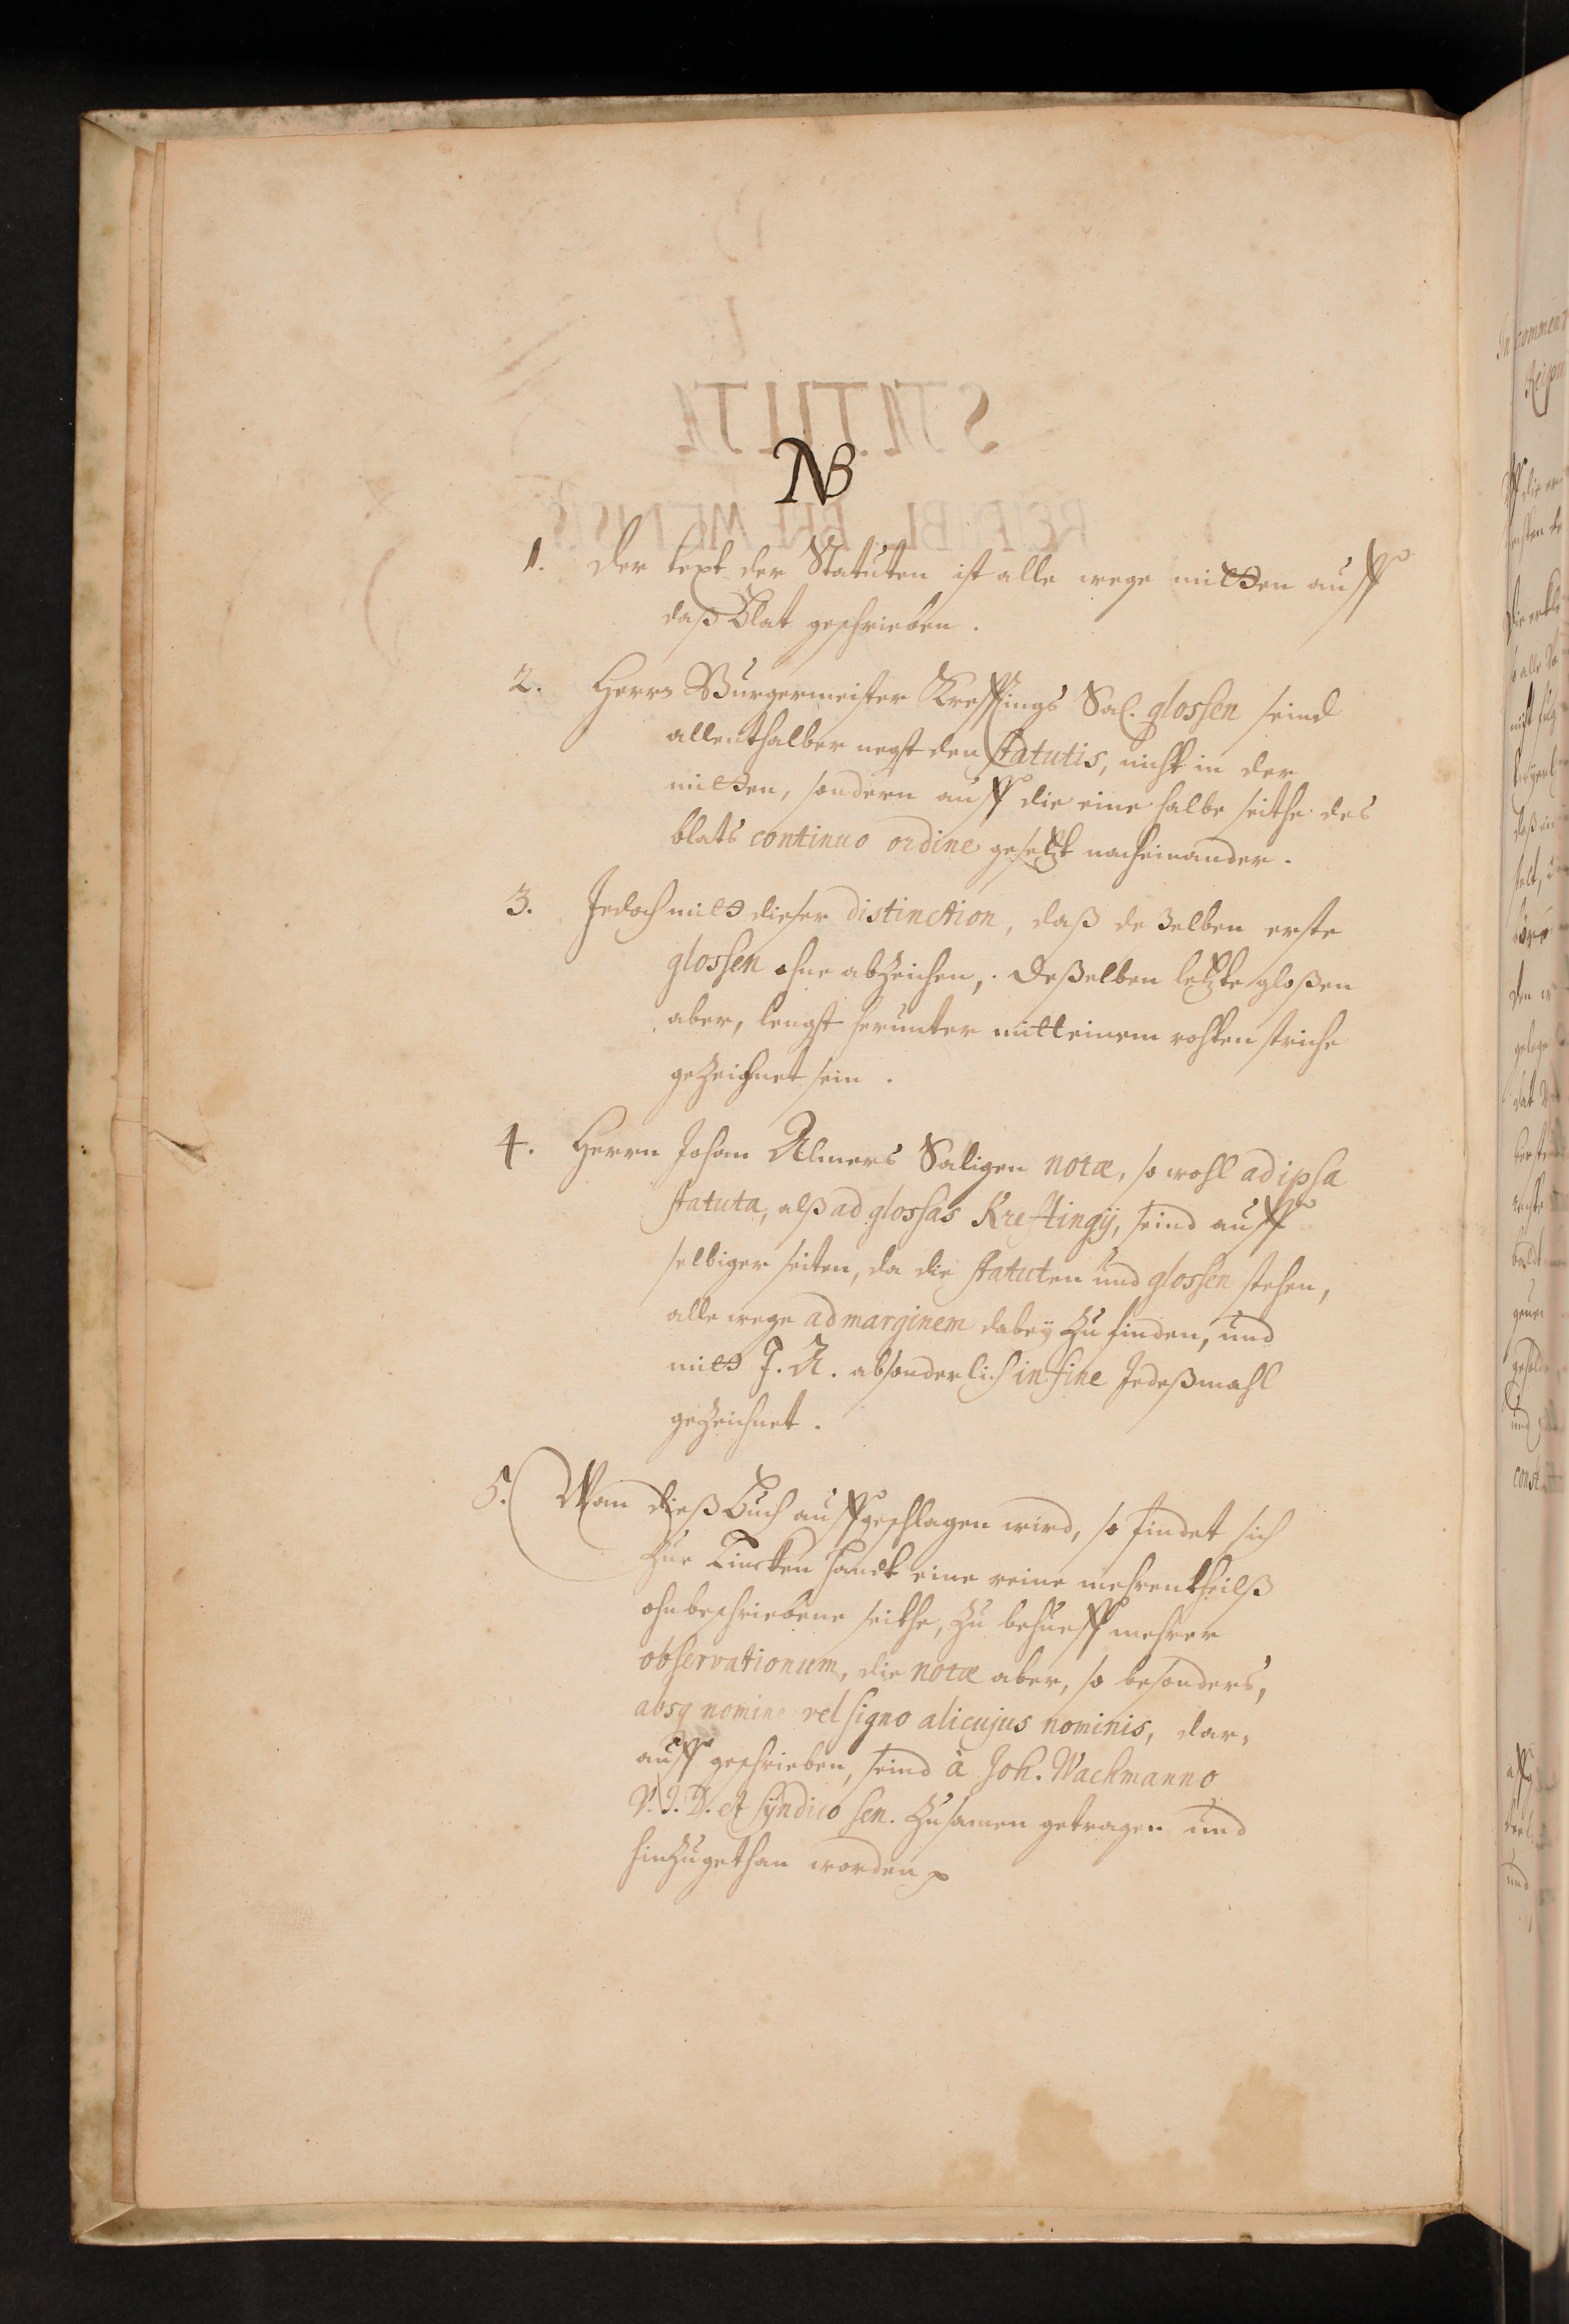 NB
1. Der text der Statuten ist alle wege mitten auff
daß Blat geschrieben.
2. Herrn Bürgermeister Krefftings Sal. glossen seind
allenthalber negst den statutis, nicht in der
mitten, sondern auff die eine halbe seithe des
blats continuo ordine gesetzt nacheinander.
3. Jedoch mitt dieser distinction, daß deßelben erste
glossen ohne abzeichen, deßelben letzte gloßen
aber, lengst herunter mitt einem rohten striche
gezeichnet sein.
4. Herrn Johan Almers Saligen notæ, so wohl ad ipsa
statuta, alß ad glossas Kreftingij, seind auff
selbiger seiten, da die statuten und glossen stehen,
alle wege ad marginem dabey zu finden, und
mitt J. A. absonderlich in fine Jedeßmahl
gezeichnet.
5. Wan dieß Buch auffgeschlagen wird, so findet sich
zur Lincken handt eine reine mehrentheilß
ohnbeschriebene seithe, zu behueff mehrer
observationum, die notæ aber, so besonders,
absq nomine vel signo alicujus nominis, dar,
auff geschrieben, seind à Joh. Wachmanno
V. J. D. et syndico sen. zusamen getragen und
hinzugethan worden